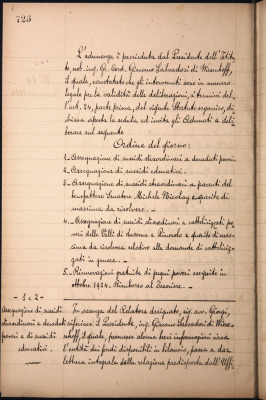 723
L'adunanza è presieduta dal Presidente dell'Istitu-
to, nob. ing. Gr. Cord. Giacomo Salvadori di Wiesenhoff,
il quale, constatato che gli intervenuti sono in numero
legale per la validità delle deliberazioni, a termini del-
l'art. 24, parte prima, del vigente Statuto organico, di-
chiara aperta la seduta ed invita gli Adunati a deli-
berare sul seguente
Ordine del giorno:
1 - Assegnazione di sussidi straordinari a decaduti poveri.
2 - Assegnazione di sussidi educativi. -
3 - Assegnazione di sussidi straordinari a parenti del
benefattore Senatore Michele Nicolay e quesito di
massima da risolvere. -
4 - Assegnazione di sussidi straordinari a cattolizzati po-
veri delle Valli di Luserna e Pinerolo e quesito di mas-
sima da risolvere relativo alle domande di cattoliz-
zati in genere. -
5 - Rinnovazioni gratuite di pegni poveri eseguite in
ottobre 1924. Rimborso al Tesoriere. -
- 1 e 2 -
Assegnazione di sussidi
straordinari a decaduti
poveri e di sussidi
educativi.
In assenza del Relatore designato, ing. avv. Giorgi,
riferisce il Presidente, ing. Giacomo Salvadori di Wiese-
nhoff, il quale, premesse alcune brevi informazioni circa
l'entità dei fondi disponibili in bilancio, passa a dar
lettura integrale della relazione predisposta dall'Uffi-